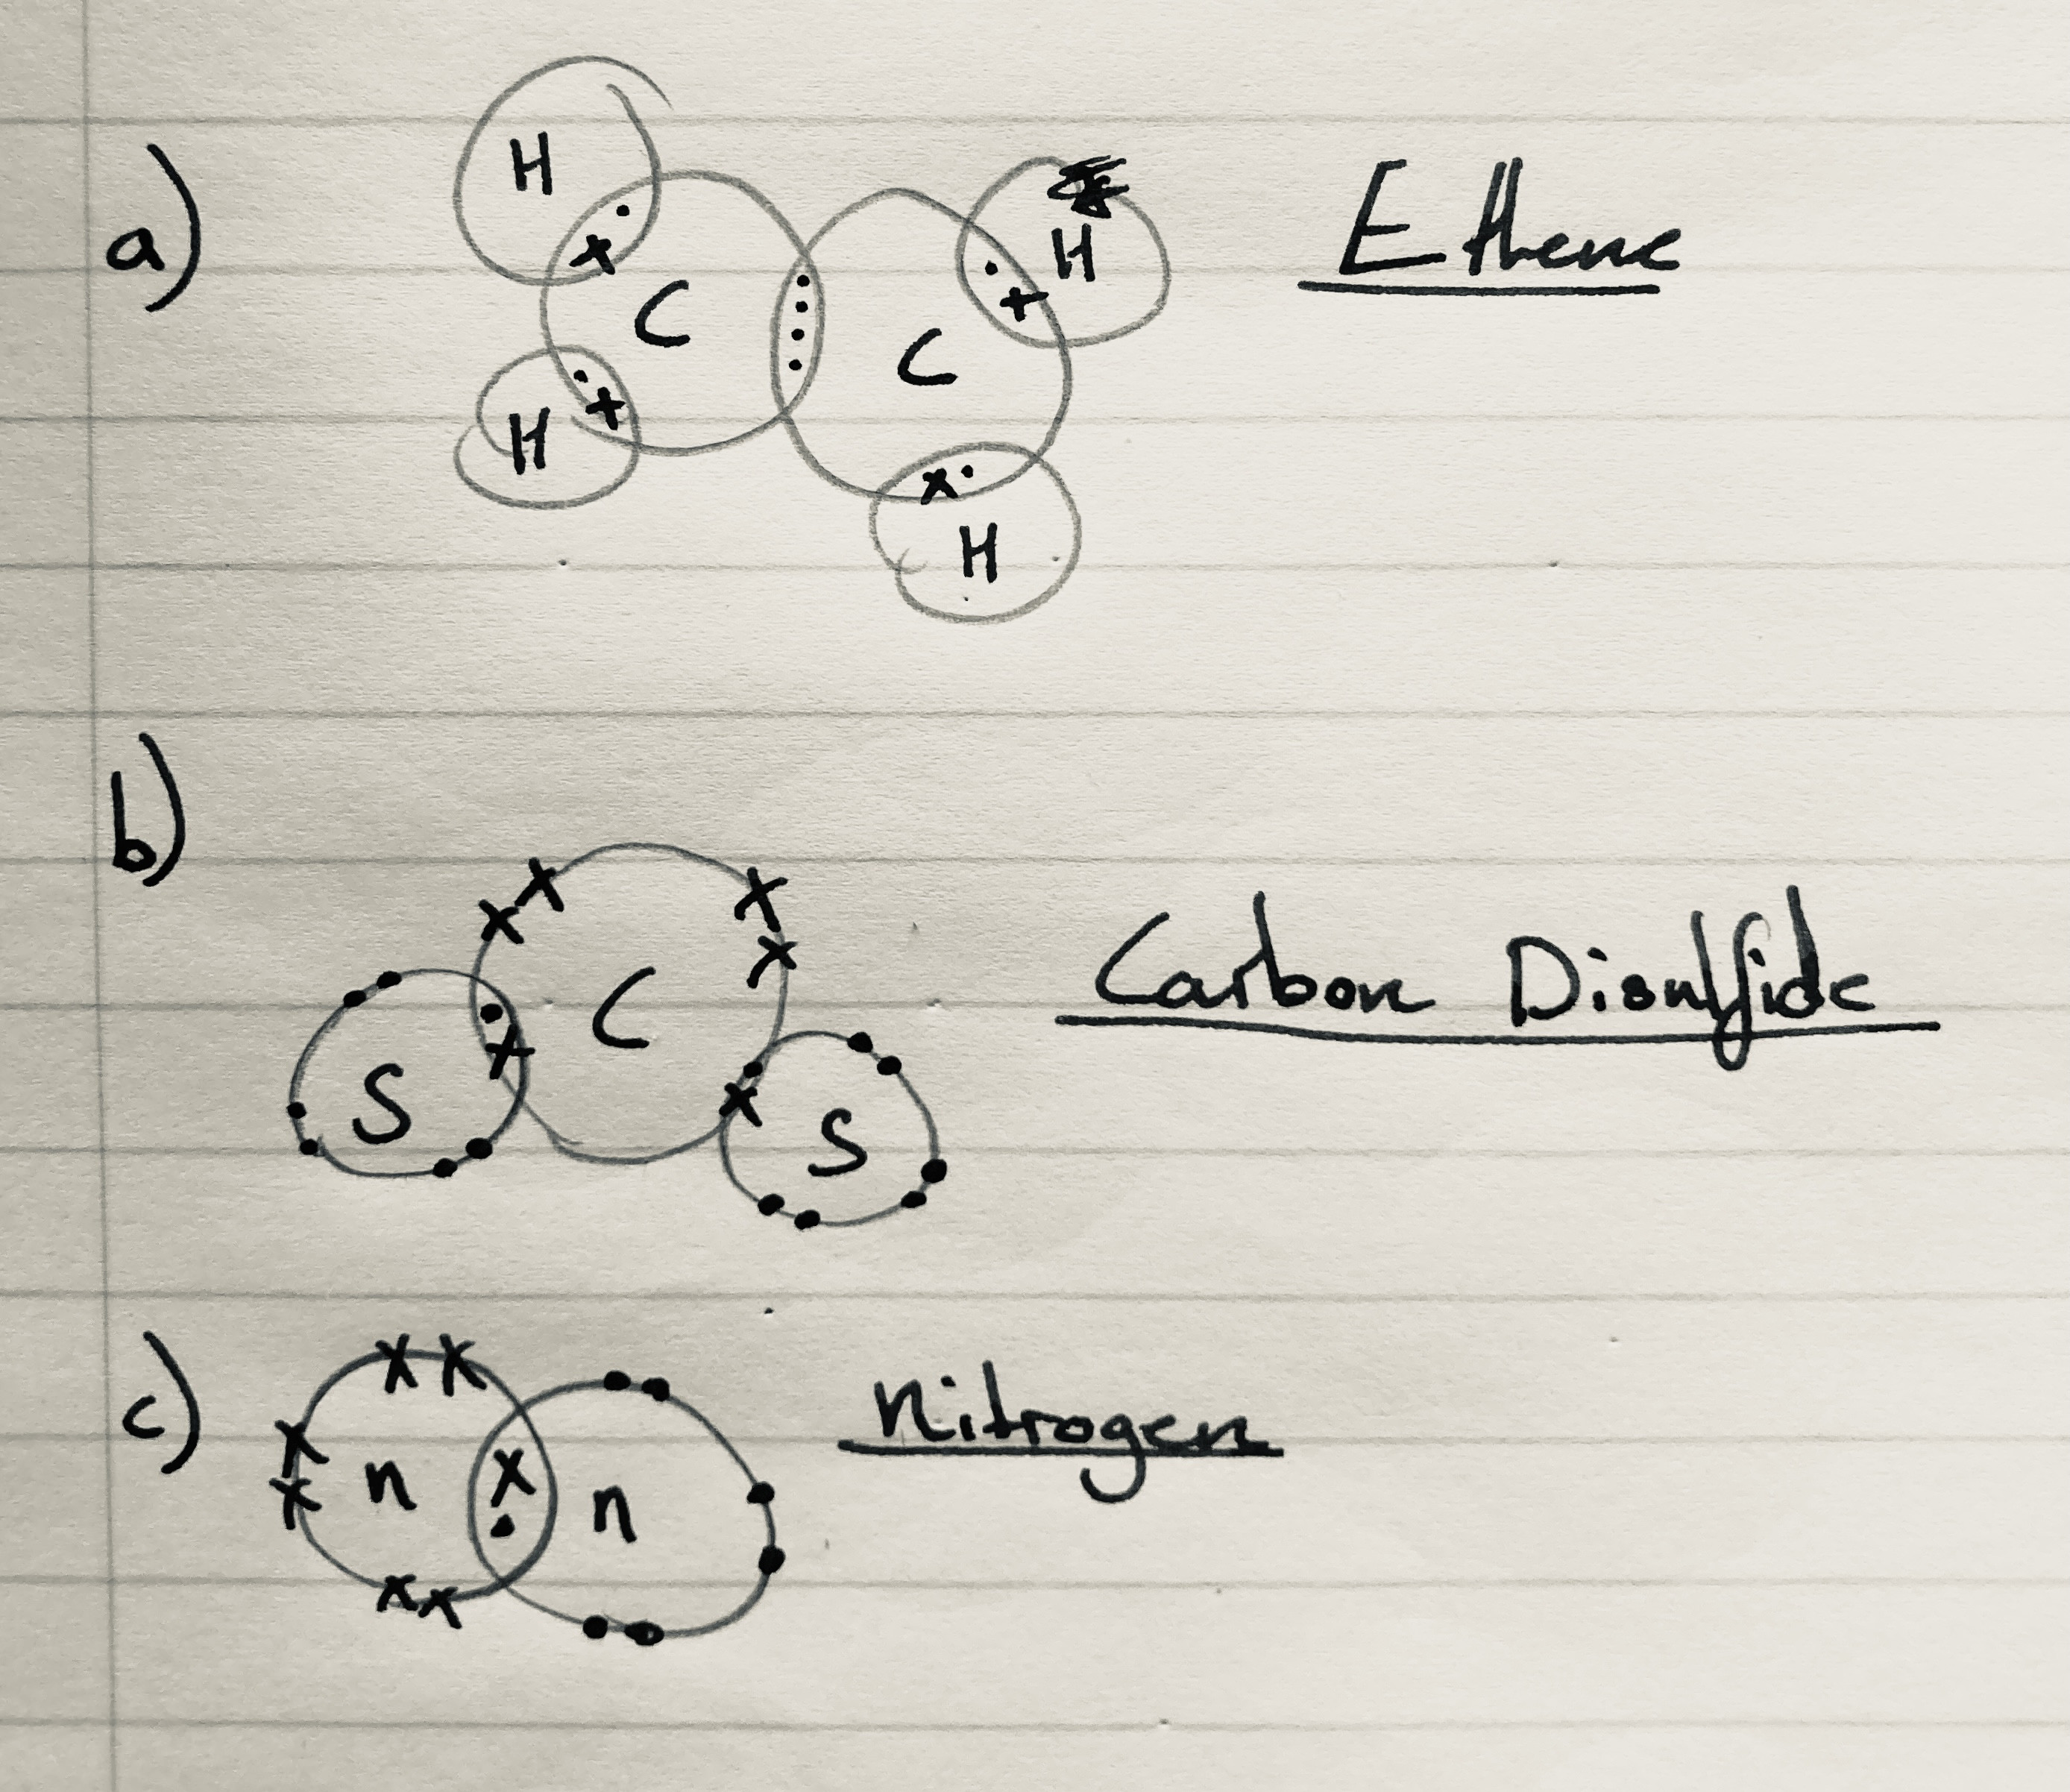 a)
H
H
C
C
H
H
Ethene
b)
C
S
S
Carbon Disulfide
c)
n
n
nitrogen